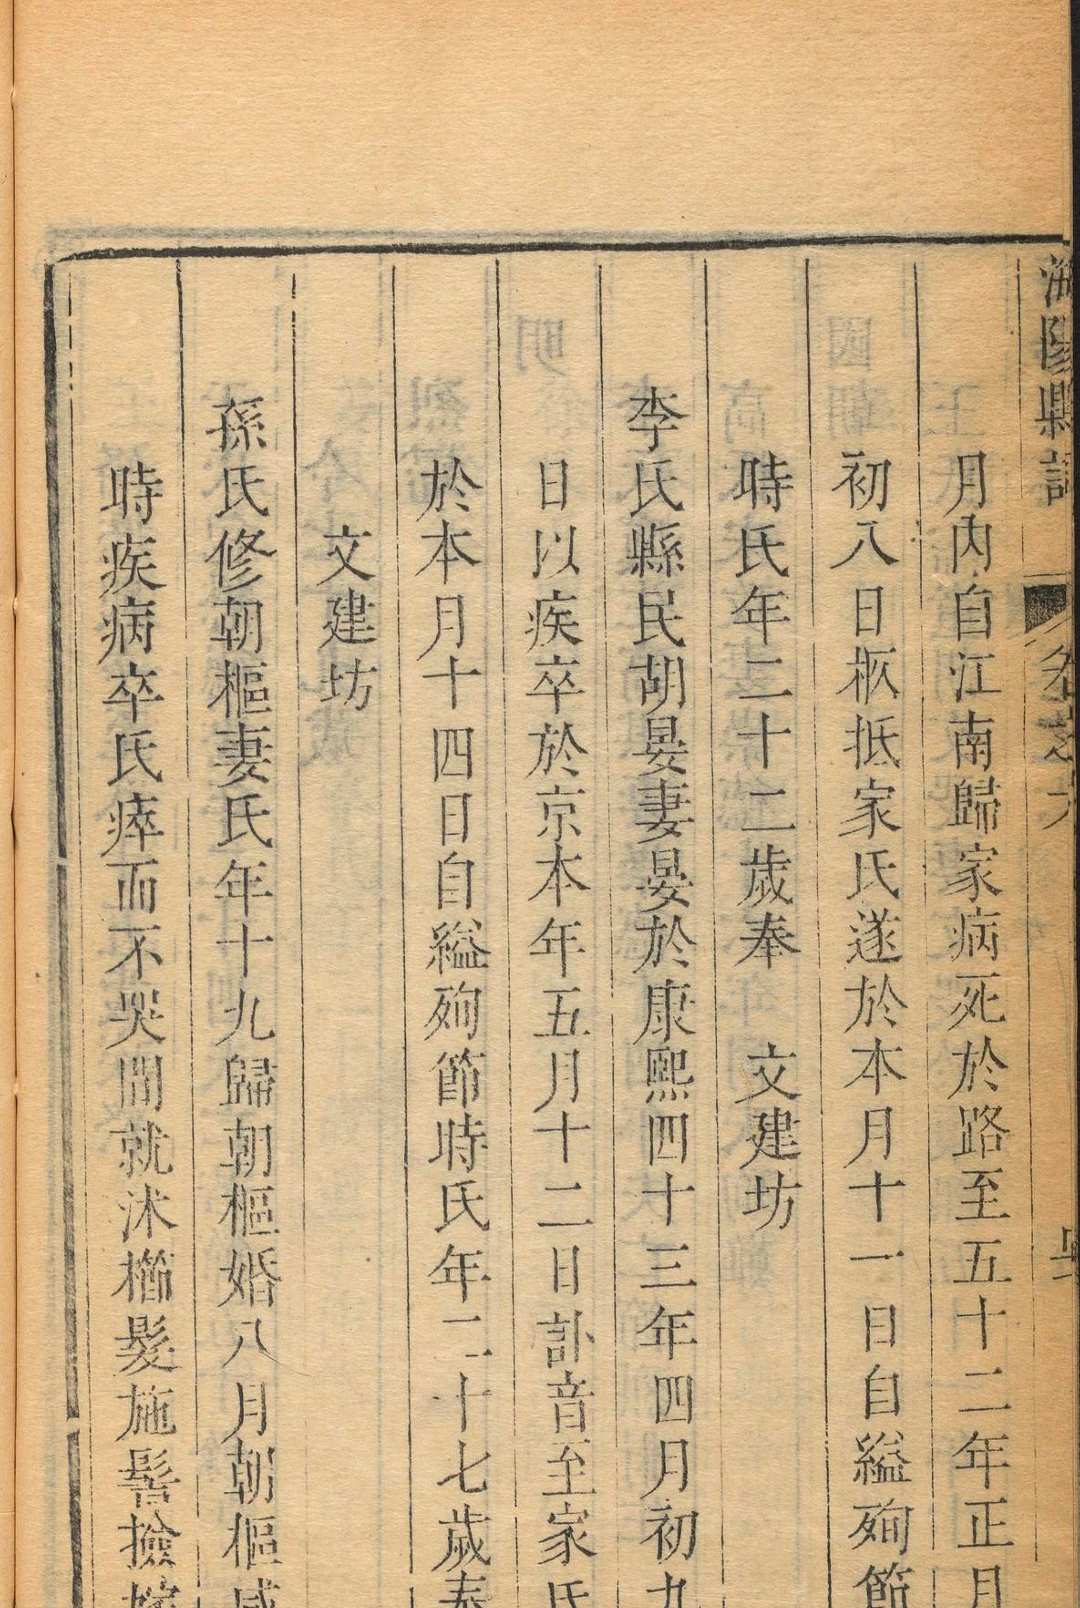 陽縣
月內自江南歸家病死於路至五十二年正月
初八日柩抵家氏遂於本月十一日自縊殉節
時氏年二十二歲奉　文建坊
李氏縣民胡晏妻晏於康熙四十三年四月初九
日以疾卒於京本年五月十二日訃音至家氏
於本月十四日自縊殉節時氏年二十七歲奉
文建坊
孫氏修朝樞妻氏年十九歸朝樞婚八月朝樞感
時疾病卒氏瘁而不哭間就沐櫛髮施髻撿